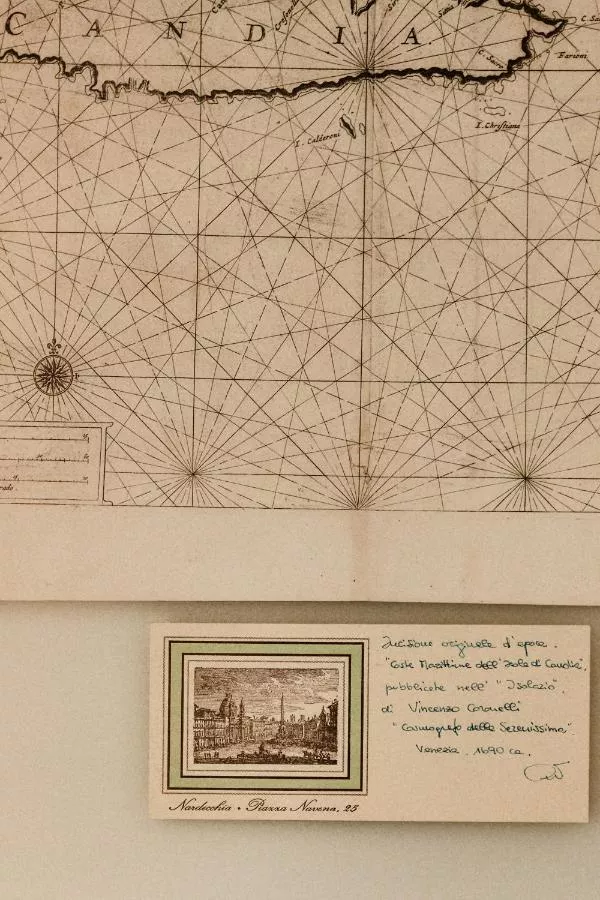 C A N D I A
C. Sacro
Farioni
I. Calderoni
I. Christiana
Incisione originale d'epoca.
"Coste Marittime dell'Isola di Candia",
pubblicate nell' "Isolario",
di Vincenzo Coronelli
"Cosmografo della Serenissima"
Venezia, 1690 ca.
Nardecchia • Piazza Navona, 25